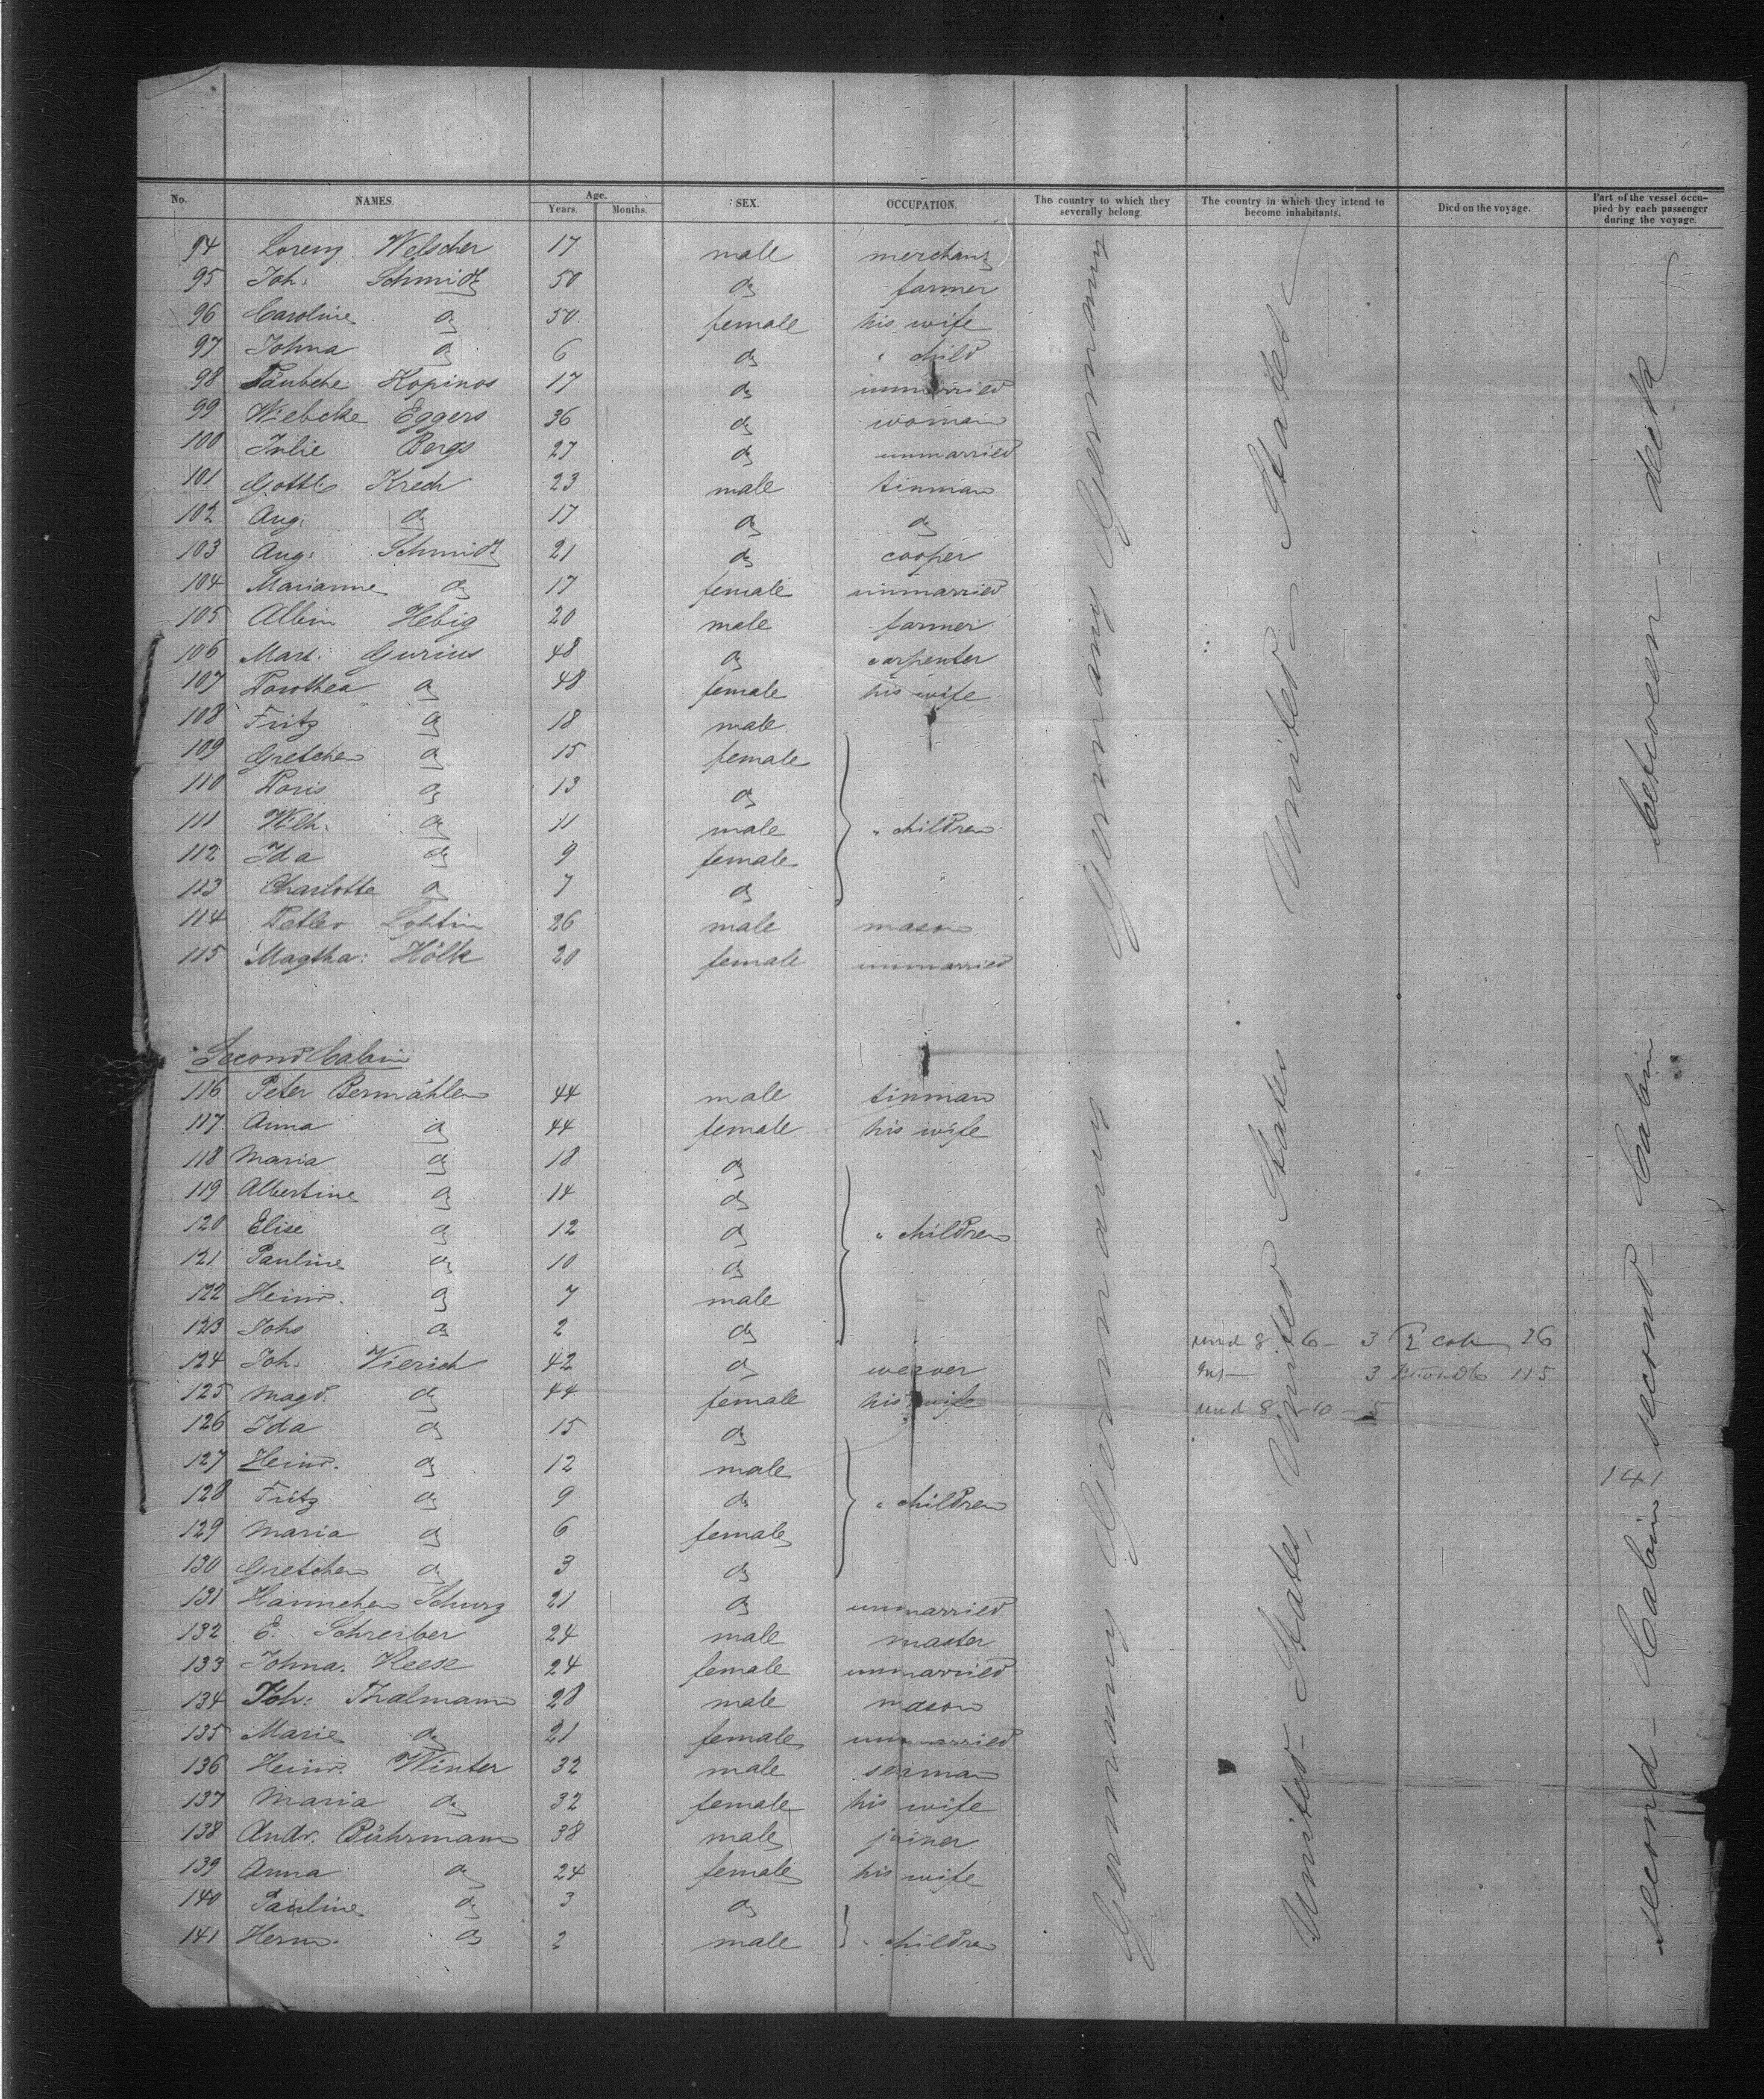 No. NAMES. Age. Years. Months. SEX. OCCUPATION. The country to which they severally belong. The country in which they intend to become inhabitants. Died on the voyage. Part of the vessel occupied by each passenger during the voyage.
94 Lorenz Welscher 17 male merchant
95 Joh. Schmidt 50 do farmer
96 Caroline do 50 female his wife
97 Johna do 6 do " child
98 Täubche Kopinos 17 do unmarried
99 Wiebcke Eggers 36 do woman
100 Julie Bergs 27 do unmarried
101 Gottlb Krech 23 male tinman
102 Aug. do 17 do do
103 Aug: Schmidt 21 do cooper
104 Marianne do 17 female unmarried
105 Albin Hebig 20 male farmer
106 Mart. Gurius 48 do carpenter
107 Dorothea do 48 female his wife
108 Fritz do 18 male
109 Gretchen do 15 female
110 Doris do 13 do
111 Wilh. do 11 male " children
112 Ida do 9 female
113 Charlotte do 7 do
114 Detlev 26 male mason
115 Magtha: Hölk 20 female unmarried
Germany Germany
United States
between-deck
Second Cabin
116 Peter Bermählen 44 male tinman
117 Anna do 44 female his wife
118 Maria do 18 do
119 Albertine do 14 do
120 Elise do 12 do " children
121 Pauline do 10 do
122 Heinr. do 7 male
123 Johs do 2 do
124 Joh. Vierich 42 do weaver
125 Magd. do 44 female his wife
126 Ida do 15 do
127 Heinr. do 12 male
128 Fritz do 9 do " children
129 Maria do 6 female
130 Gretchen do 3 do
131 Hannchen Schurz 21 do unmarried
132 E. Schreiber 24 male master
133 Johna. Reese 24 female unmarried
134 Joh: Thalmann 28 male mason
135 Marie do 21 female unmarried
136 Heinr. Winter 32 male seaman
137 Maria do 32 female his wife
138 Andr. Bührmann 38 male joiner
139 Anna do 24 female his wife
140 Pauline do 3 do
141 Herm. do 2 male " children
Germany Germany
United States, United States
second Cabin second Cabin
und 8 6 - 3 2 cab 26
3 115
und 8 - 10 - 5
141